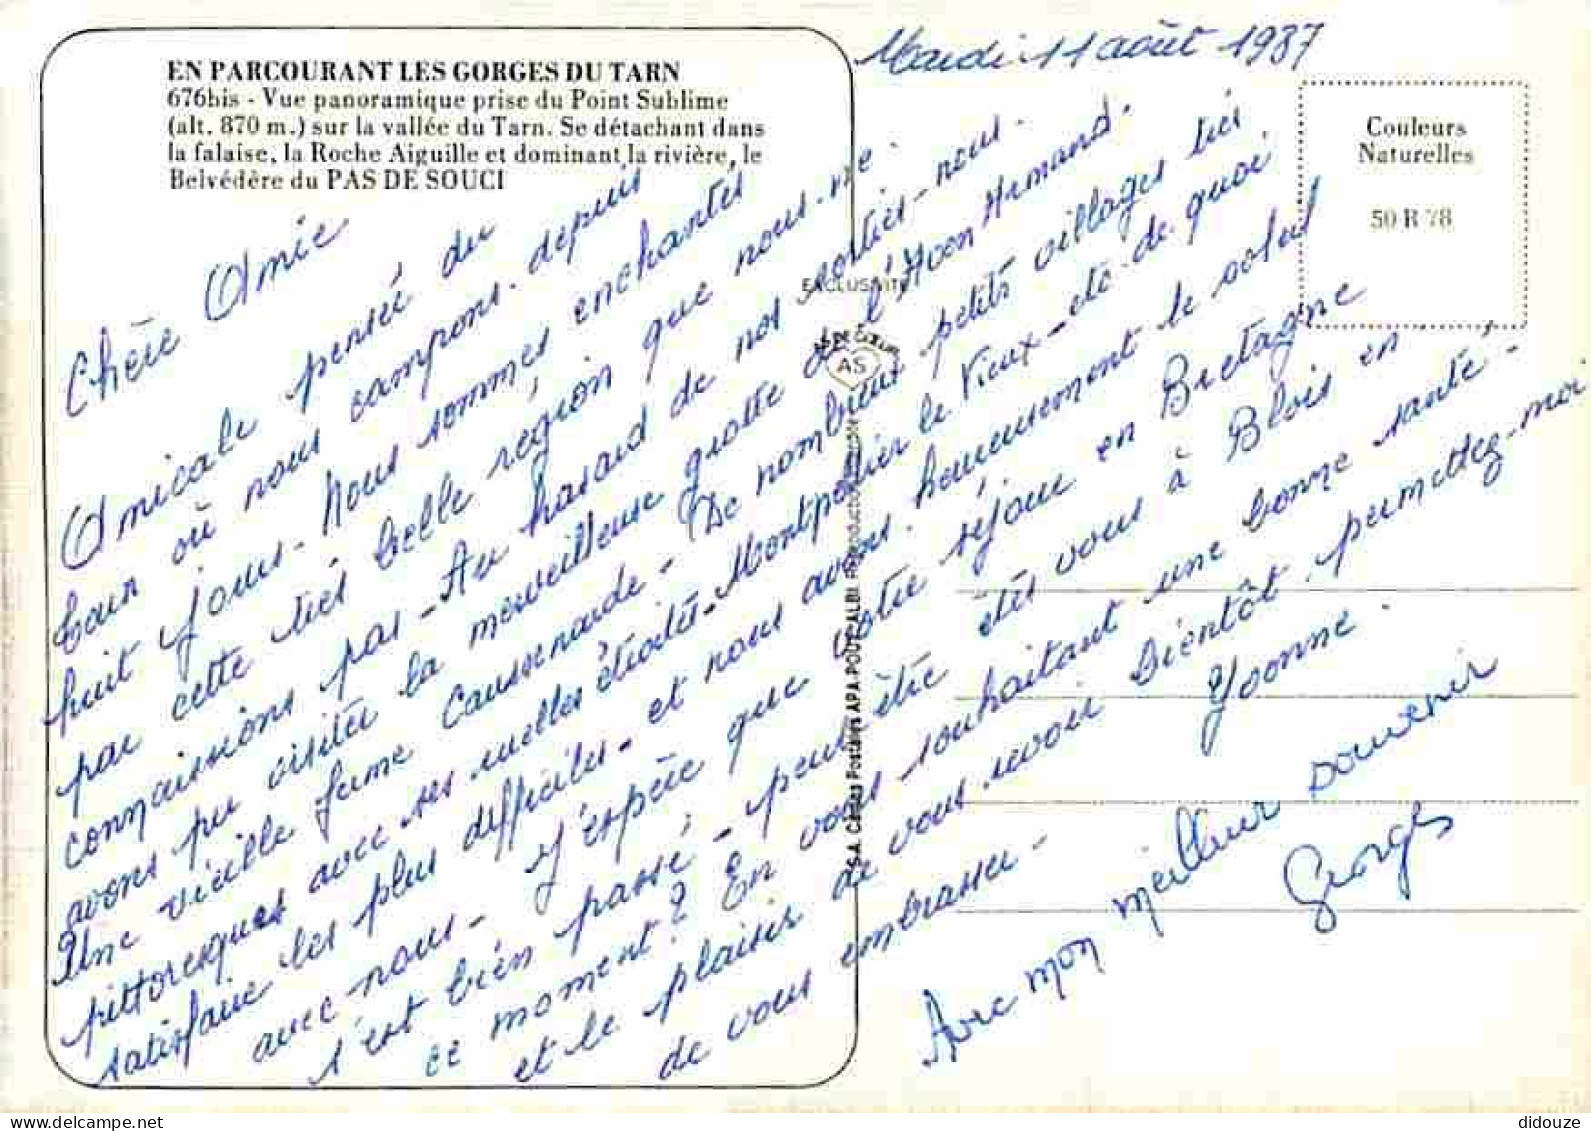 Mardi 11 août 1987
EN PARCOURANT LES GORGES DU TARN
676bis - Vue panoramique prise du Point Sublime
(alt. 870 m.) sur la vallée du Tarn. Se détachant dans
la falaise, la Roche Aiguille et dominant la rivière, le
Belvédère du PAS DE SOUCI
Couleurs
Naturelles
50 R 78
EXCLUSIVITÉ
AS DE CŒUR
AS
S.A. Cartes Postales APA-POUX ALBI. Reproduction
Chère Amie
Amicale pensée du
où nous campons depuis
huit jours - Nous sommes enchantés
par cette très belle région que nous ne
connaissions pas - Au hasard de nos sorties - nous
avons pu visiter la merveilleuse grotte de l'Aven Armand.
Une vieille ferme Caussenarde - De nombreux petits villages très
pittoresques avec ses ruelles étroites - Montpellier le Vieux - etc - de quoi
satisfaire les plus difficiles - et nous avons heureusement le soleil
avec nous - J'espère que votre séjour en Bretagne
s'est bien passé - peut être êtes vous à Blois en
ce moment ? En vous souhaitant une bonne santé -
et le plaisir de vous revoir bientôt, permettez-moi
de vous embrasser -
Yvonne.
Avec mon meilleur souvenir
Georges
didouze